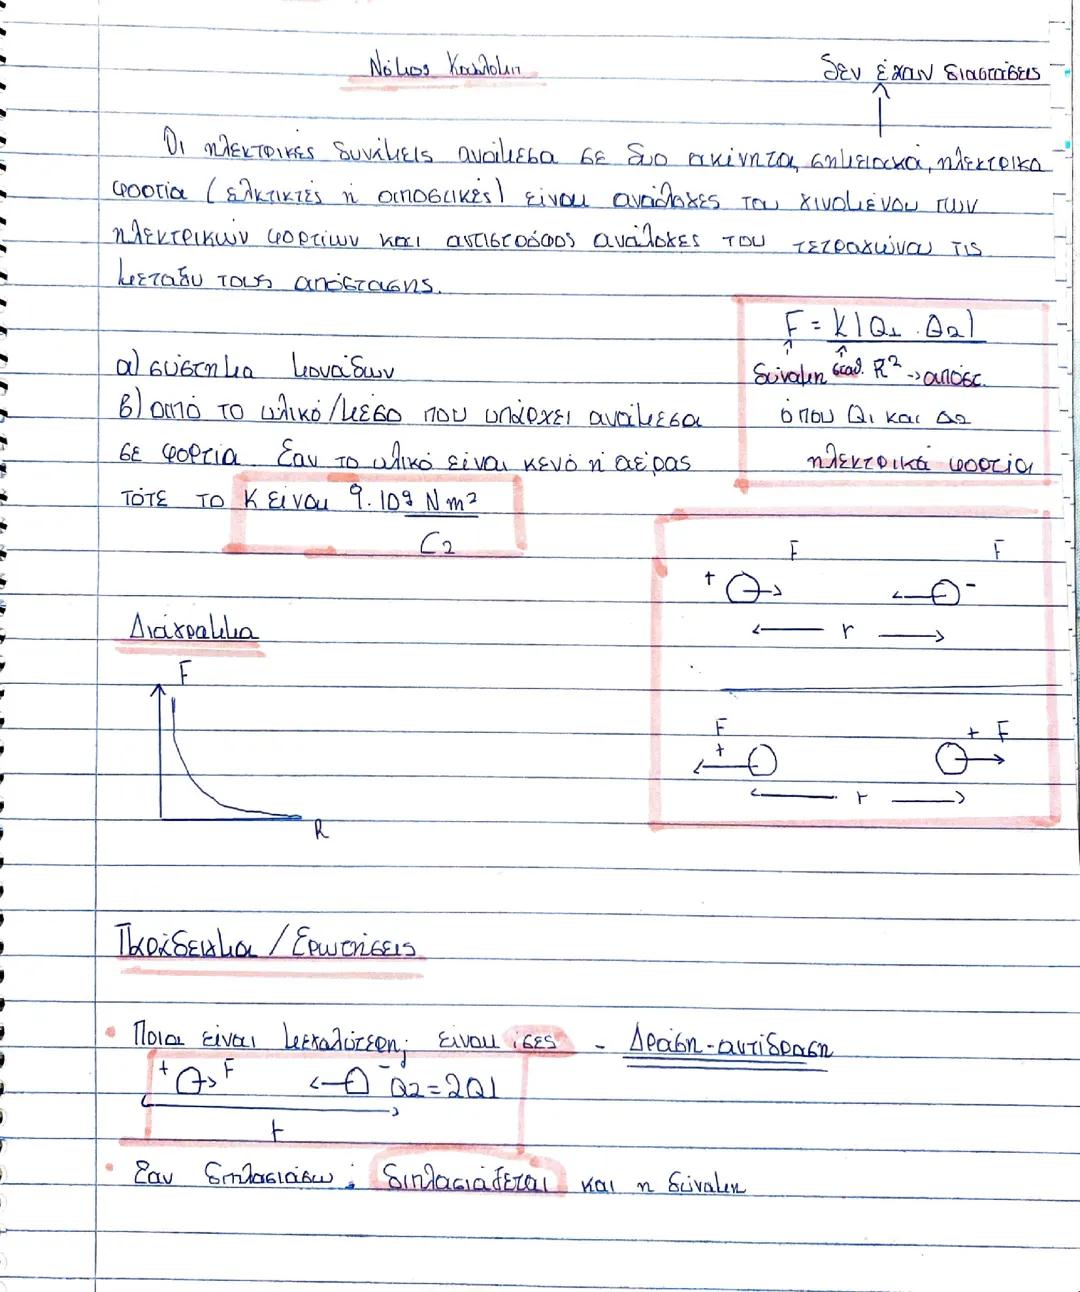 Νόμος Κουλόμπ
δεν έχουν διαστάσεις
Οι ηλεκτρικές δυνάμεις ανάμεσα σε δυο ακίνητα, σημειακά, ηλεκτρικά
φορτία (ελκτικτές ή απωστικές) είναι ανάλογες του γινομένου των
ηλεκτρικών φορτίων και αντιστρόφος ανάλογες του τετραγώνου τις
μεταξυ τους απόστασης.
F = K|Q1 . Q2|
δύναμη σταθ. R² → αποστ.
όπου Q1 και Q2
ηλεκτρικά φορτία
α) σύστημα μονάδων
β) από το υλικό/μέσο που υπάρχει ανάμεσα
σε φορτία. Εαν το υλικό είναι κενό ή αέρας
τότε το K είναι 9.10⁹ N m²
C2
F F
+ -
r
Διάγραμμα
F
R
F + F
+
r
Παράδειγμα / Ερωτήσεις
• Ποια είναι μεγαλύτερη; είναι ίσες - Δράση-αντίδραση
+ F - Q2 = 2Q1
r
• Εαν διπλασιάσω; διπλασιάζεται και η δύναμη